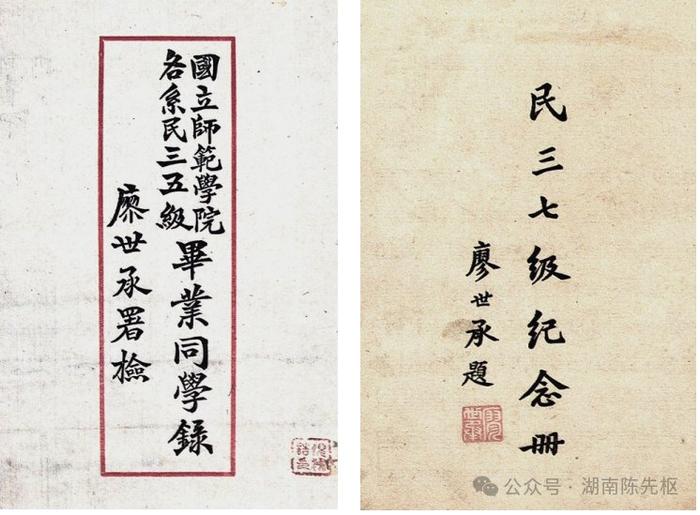 國立師範學院
各系民三五級
畢業同學錄
廖世承署檢
民三七级纪念册
廖世承題
公众号·湖南陈先枢